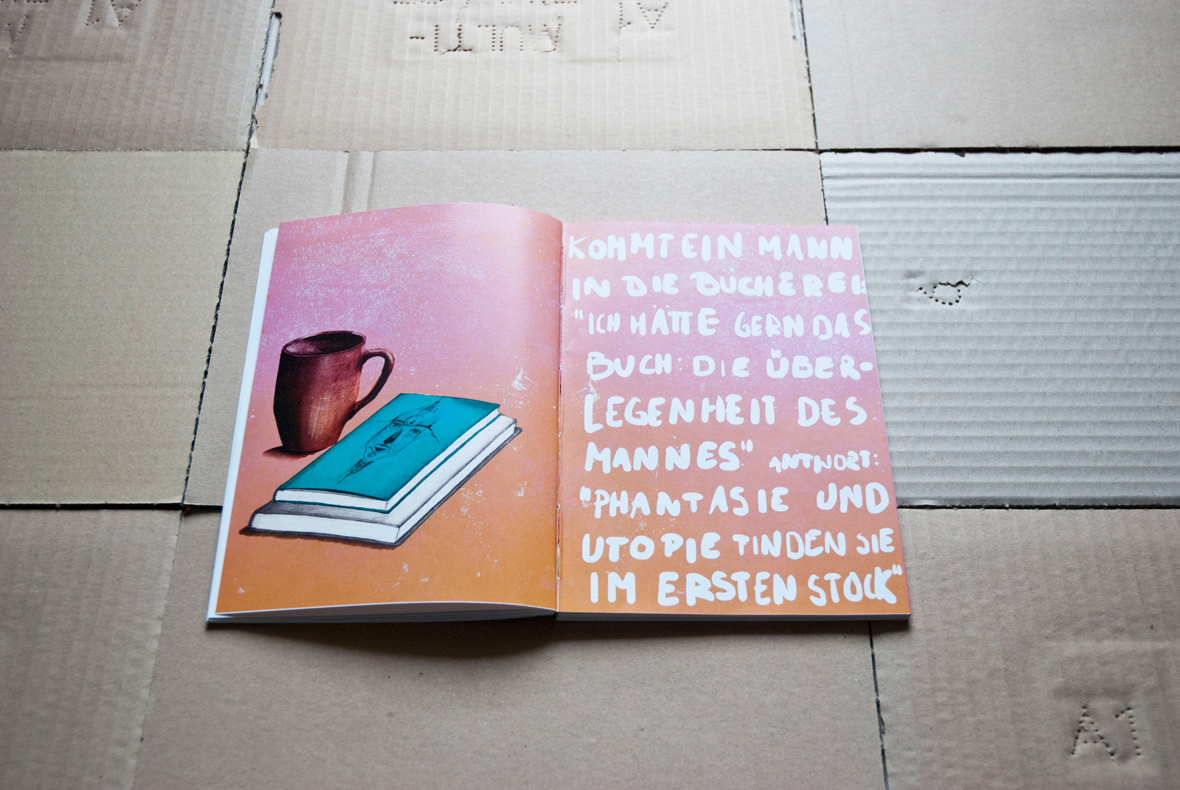 KOMMT EIN MANN
IN DIE BÜCHEREI:
"ICH HÄTTE GERN DAS
BUCH: DIE ÜBER-
LEGENHEIT DES
MANNES" ANTWORT:
"PHANTASIE UND
UTOPIE FINDEN SIE
IM ERSTEN STOCK"
A1